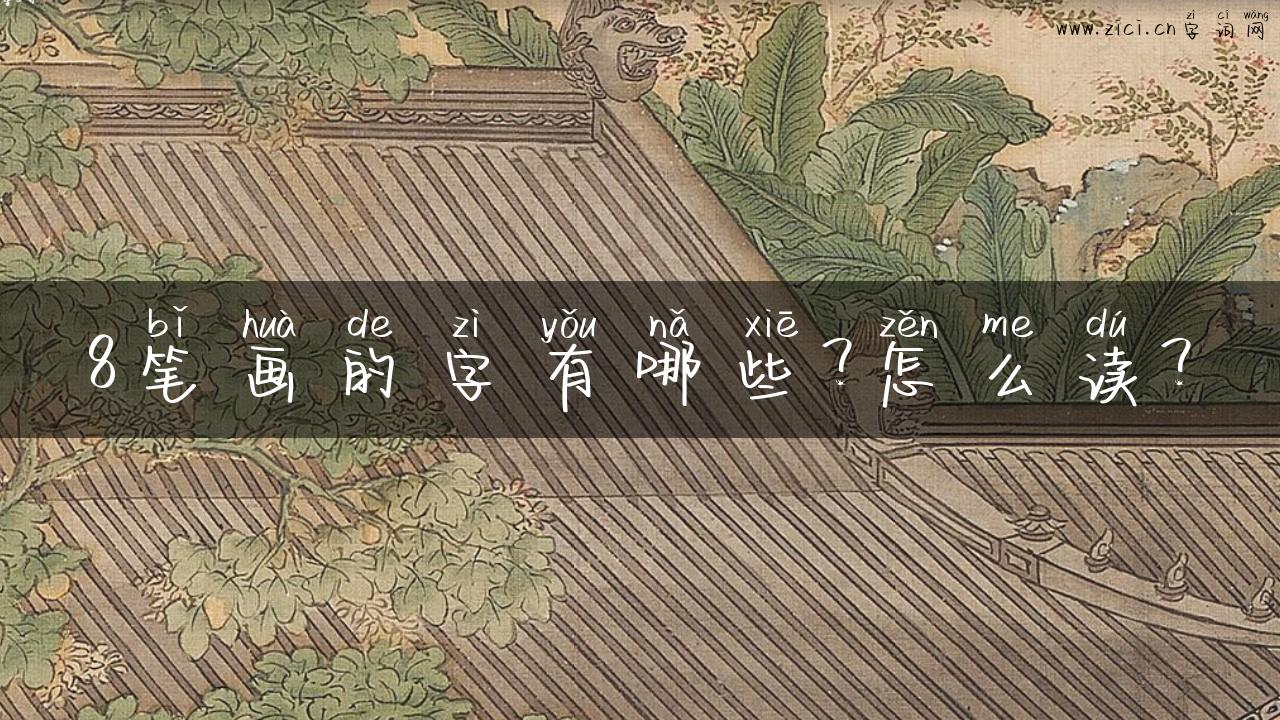 zì cí wǎng
www.zici.cn 字词网
bǐ huà de zì yǒu nǎ xiē zěn me dú
8笔画的字有哪些?怎么读?